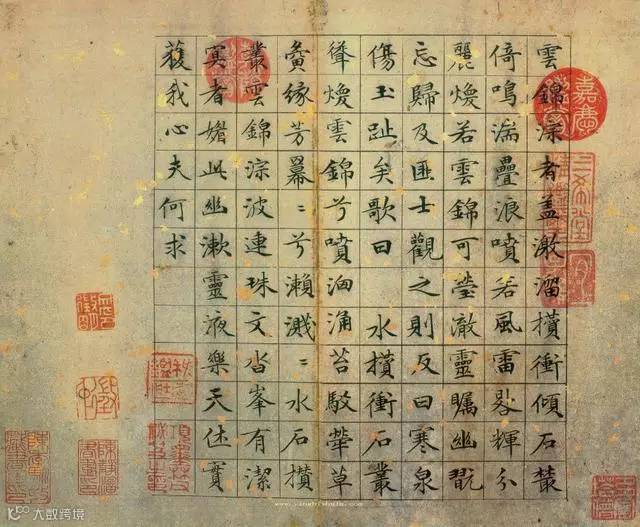 雲錦淙者盖激溜攢衝傾石叢
倚鳴湍疊浪噴若風雷輝分
麗煥若雲錦可瑩澈靈矚幽翫
忘歸及匪士觀之則反曰寒泉
傷玉趾矣歌曰 水攢衝石叢
聳煥雲錦兮噴洶涌苔駮犖草
夤緣芳冪〻兮瀨濺〻水石攢
叢雲錦淙波連珠文沓峯有潔
冥者媚此幽漱靈液樂天休實
獲我心夫何求
大数跨境